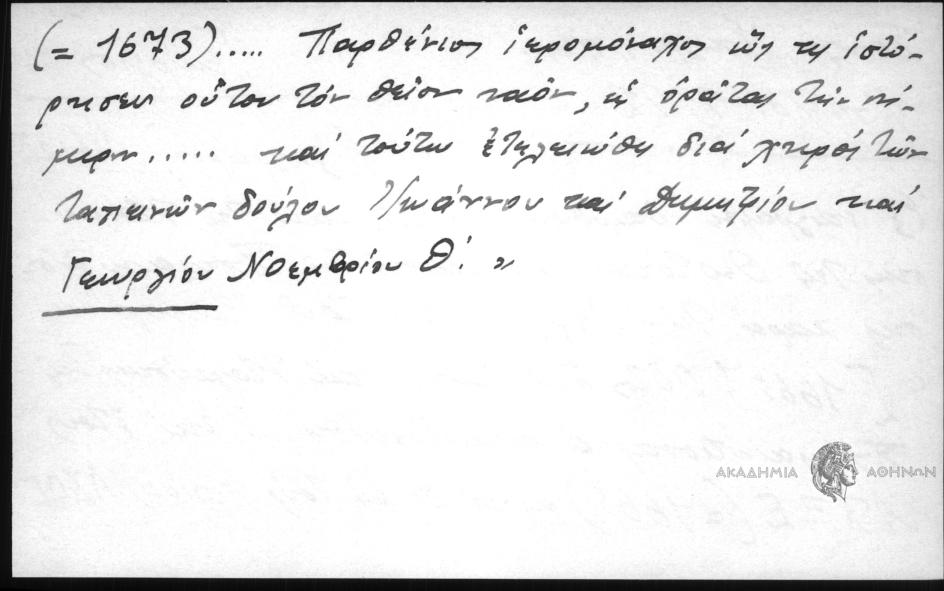 (= 1673)..... Παρθένιος ἱερομόναχος ὡς τῃ ἱστό-
ρησεν οὗτον τόν θεῖον ναόν, ὡς ὁρᾶται τήν σή-
μερν..... καί τούτω ἐτελειώθη διά χειρός τῶν
ταπεινῶν δούλου Ἰωάννου καί Δημητρίου καί
Γεωργίου Νοεμβρίου Θ΄. »
ΑΚΑΔΗΜΙΑ ΑΘΗΝΩΝ